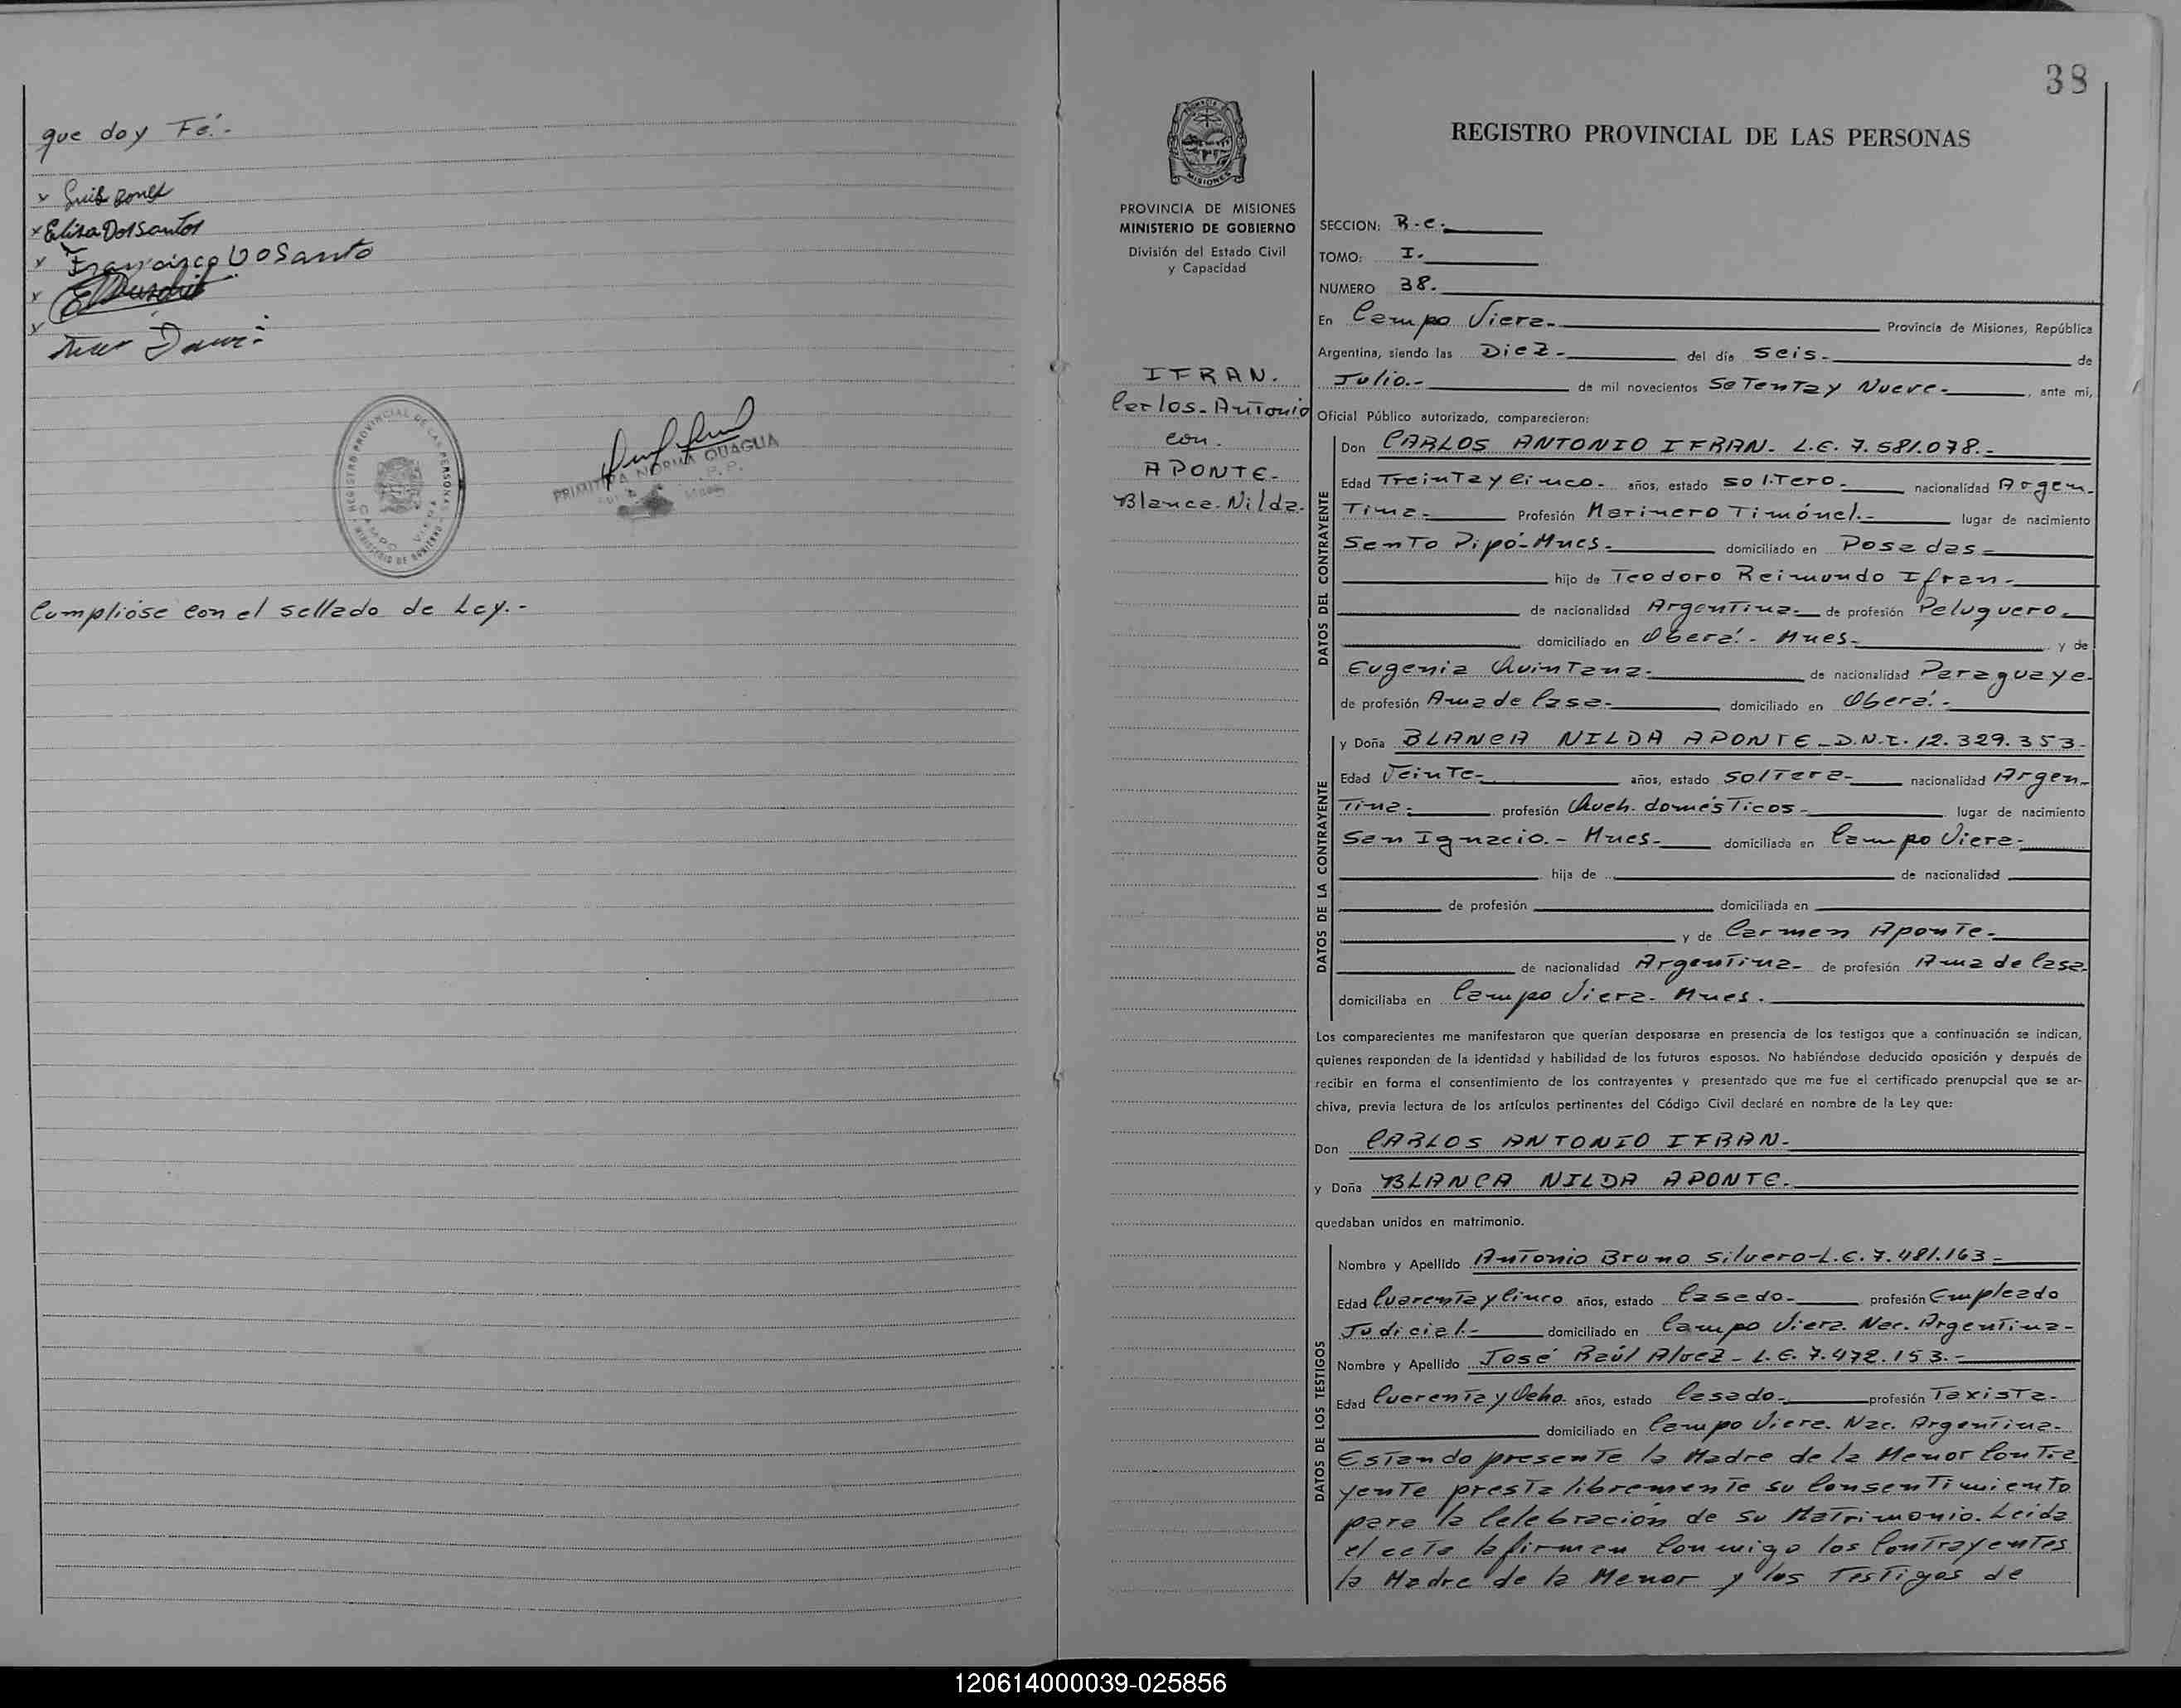 que doy Fé.-
x Luis Gomez
x Elisa Dos Santos
x Francisco Do Santo
x
x
REGISTRO PROVINCIAL DE LAS PERSONAS
CAMPO VIERA
MINISTERIO DE GOBIERNO
PRIMITIVA NORMA QUAGLIA
Cumplióse con el sellado de Ley.-
38
PROVINCIA DE MISIONES
MINISTERIO DE GOBIERNO
División del Estado Civil
y Capacidad
ITRAN.
Carlos-Antonio
con.
APONTE-
Blanca-Nilda-
REGISTRO PROVINCIAL DE LAS PERSONAS
SECCION: R.C.
TOMO: I.
NUMERO 38.
En Campo Viera- Provincia de Misiones, República
Argentina, siendo las Diez- del día seis- de
Julio.- de mil novecientos Setenta y Nueve- , ante mi,
Oficial Público autorizado, comparecieron:
DATOS DEL CONTRAYENTE
Don CARLOS ANTONIO IFRAN. L.E. 7.581.078.-
Edad Treinta y Cinco- años, estado soltero- nacionalidad Argen-
Tina- Profesión Marinero Timónel.- lugar de nacimiento
Santo Pipó-Mnes- domiciliado en Posadas-
hijo de Teodoro Reimundo Ifran-
de nacionalidad Argentina- de profesión Peluquero-
domiciliado en Oberá.- Mnes- y de
Eugenia Quintana- de nacionalidad Paraguaya-
de profesión Ama de Casa- domiciliado en Oberá.-
DATOS DE LA CONTRAYENTE
y Doña BLANCA NILDA APONTE-D.N.I. 12.329.353-
Edad Veinte- años, estado soltera- nacionalidad Argen-
Tina- profesión Queh. domésticos- lugar de nacimiento
San Ignacio.- Mnes- domiciliada en Campo Viera-
hija de de nacionalidad
de profesión domiciliada en
y de Carmen Aponte-
de nacionalidad Argentina- de profesión Ama de Casa-
domiciliaba en Campo Viera- Mnes.
Los comparecientes me manifestaron que querían desposarse en presencia de los testigos que a continuación se indican,
quienes responden de la identidad y habilidad de los futuros esposos. No habiéndose deducido oposición y después de
recibir en forma el consentimiento de los contrayentes y presentado que me fue el certificado prenupcial que se ar-
chiva, previa lectura de los artículos pertinentes del Código Civil declaré en nombre de la Ley que:
Don CARLOS ANTONIO IFRAN-
y Doña BLANCA NILDA APONTE.
quedaban unidos en matrimonio.
DATOS DE LOS TESTIGOS
Nombre y Apellido Antonio Bruno Silvero-L.E. 7.481.163-
Edad Cuarenta y Cinco años, estado Casado- profesión Empleado
Judicial- domiciliado en Campo Viera. Nac. Argentina-
Nombre y Apellido José Raúl Alvez - L.E. 7.472.153.-
Edad Cuarenta y Ocho años, estado Casado- profesión Taxista-
domiciliado en Campo Viera. Nac. Argentina-
Estando presente la Madre de la Menor Contra
yente presta libremente su Consentimiento
para la Celebración de su Matrimonio. Leida
el acta la firman Conmigo los Contrayentes
la Madre de la Menor y los Testigos de
120614000039-025856